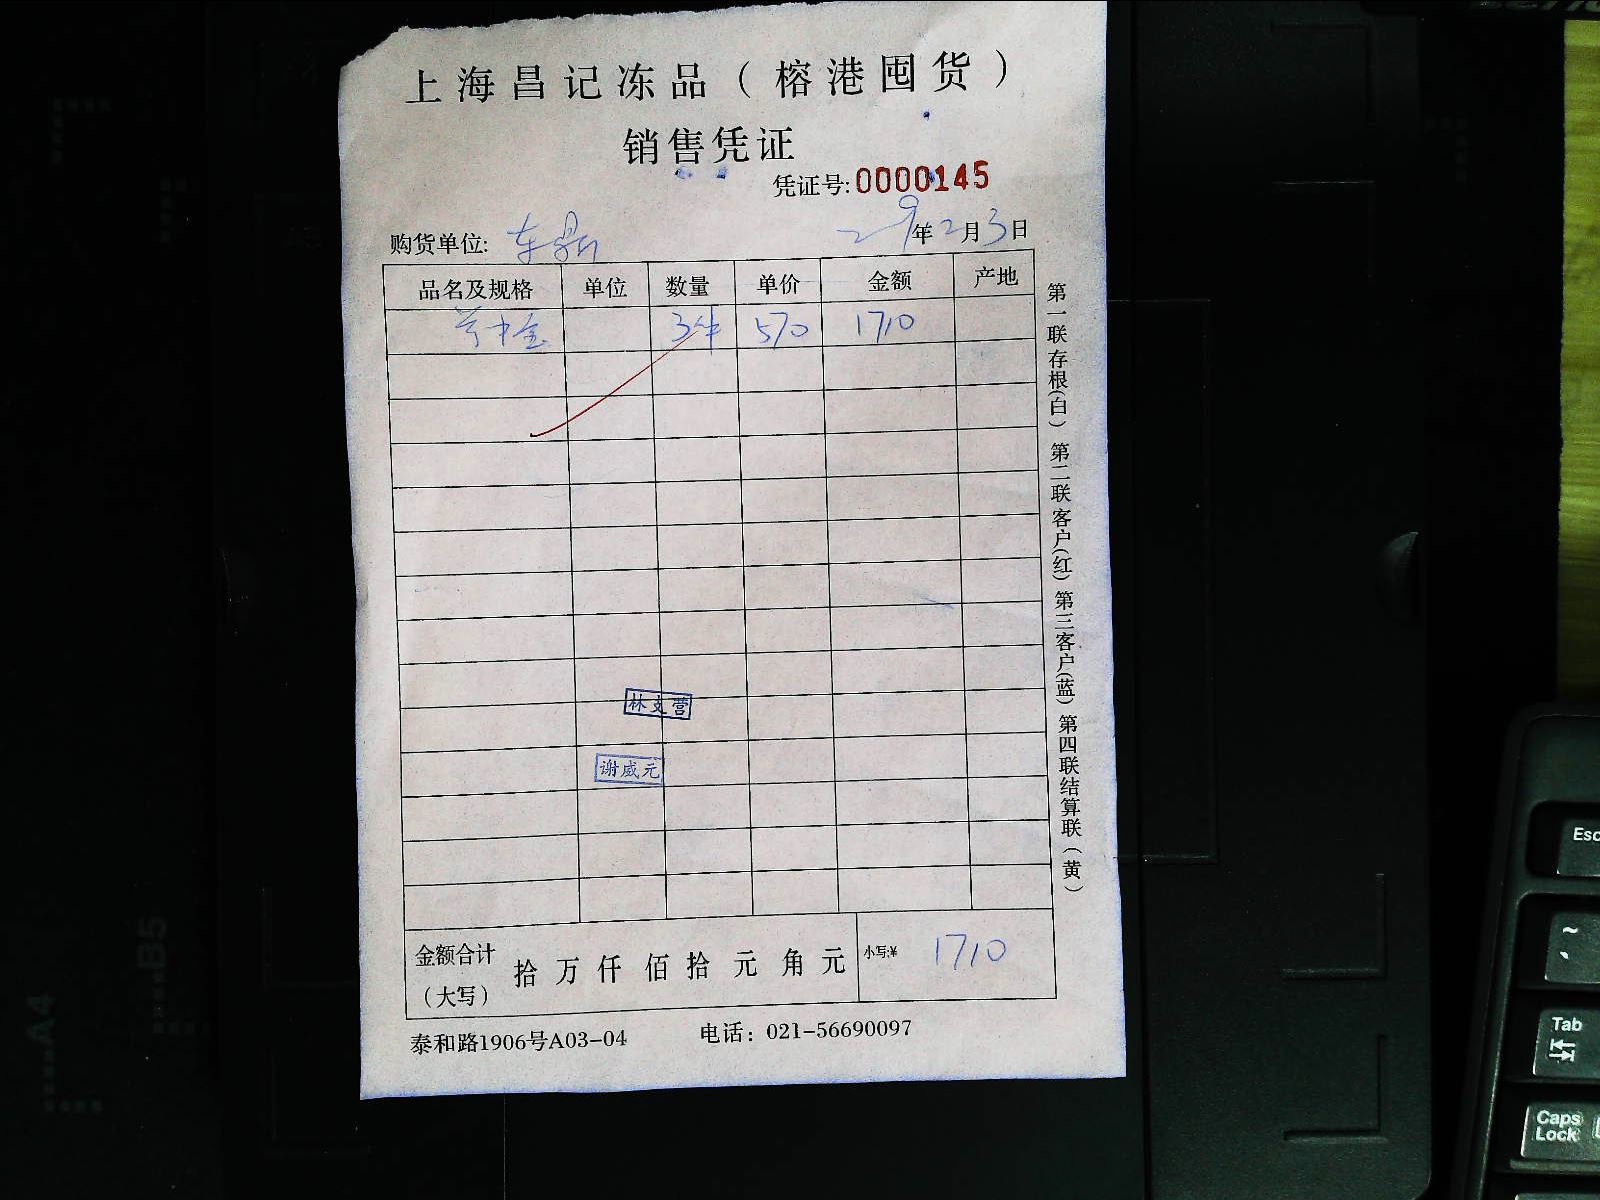 上海昌记冻品（榕港囤货）
销售凭证
凭证号:0000145
购货单位: 东鼎 年2月3日
品名及规格 单位 数量 单价 金额 产地
3件 570 1710
林支营
谢威元
金额合计（大写） 拾万仟佰拾元角元 小写:¥ 1710
泰和路1906号A03-04 电话：021-56690097
第一联存根(白) 第二联客户(红) 第三客户(蓝) 第四联结算联(黄)
A4
B5
Esc
~
Tab
Caps Lock